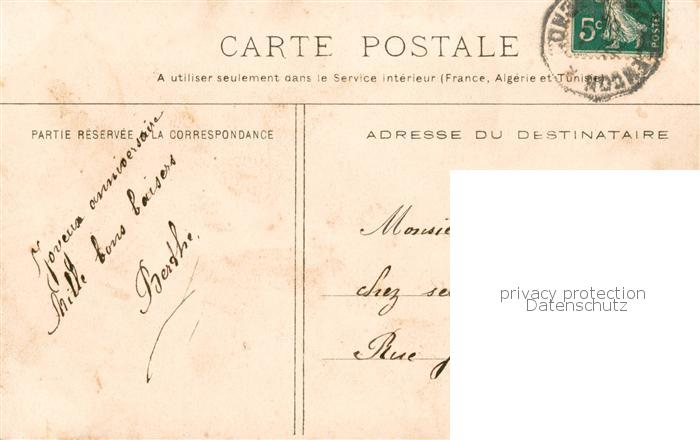 CARTE POSTALE
A utiliser seulement dans le Service intérieur (France, Algérie et Tunisie)
5c
POSTES
PARTIE RÉSERVÉE A LA CORRESPONDANCE
Joyeux anniversaire
Mille bons baisers
Berthe.
ADRESSE DU DESTINATAIRE
Monsie
chez se
Rue
privacy protection
Datenschutz